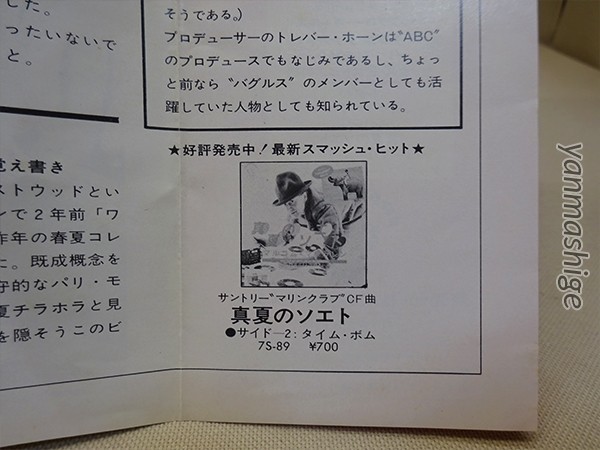 した。
ったいないで
と。
そうである。)
プロデューサーのトレバー・ホーンは“ABC”
のプロデュースでもなじみであるし、ちょっ
と前なら“バグルス”のメンバーとしても活
躍していた人物としても知られている。
覚え書き
ストウッドとい
ンで2年前「ワ
昨年の春夏コレ
た。既成概念を
守的なパリ・モ
夏チラホラと見
を隠そうこのビ
★好評発売中!最新スマッシュ・ヒット★
サントリー“マリンクラブ”CF曲
真夏のソエト
●サイド―2:タイム・ボム
7S-89 ¥700
yanmashige